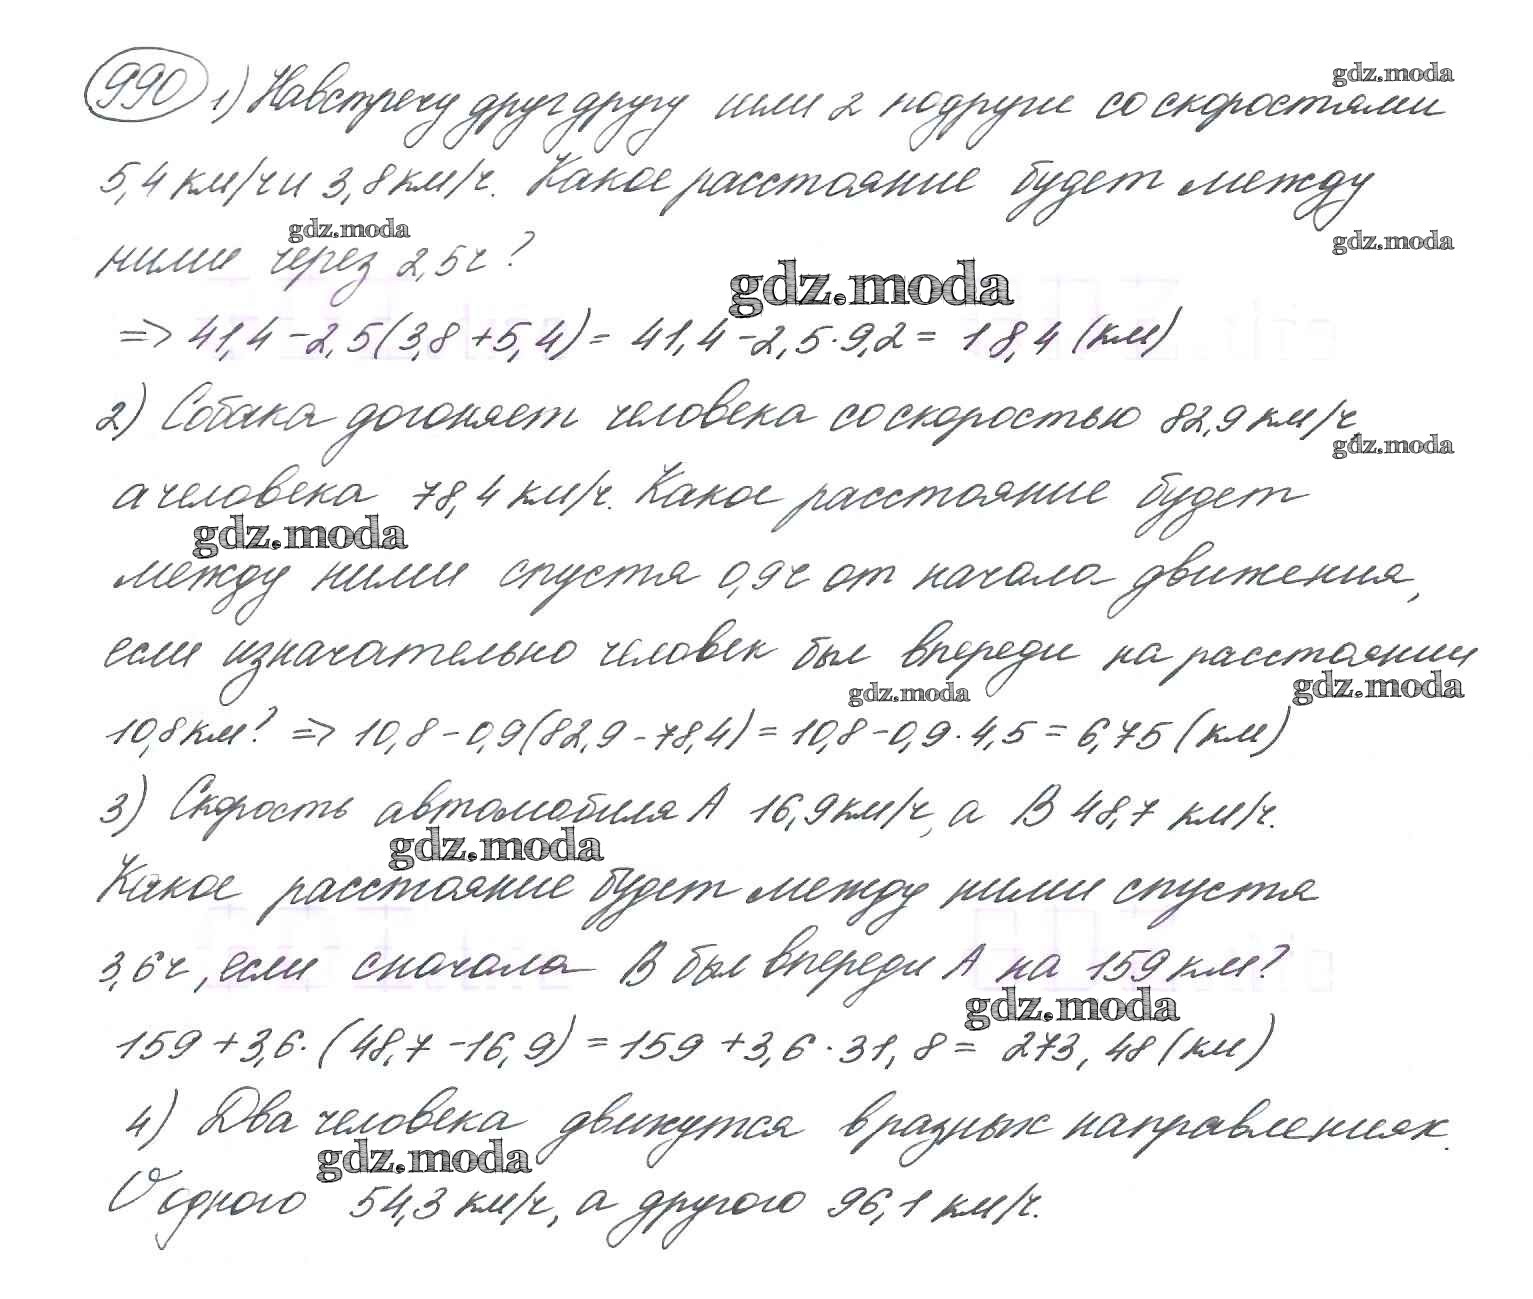 990 1) Навстречу друг другу шли 2 подруги со скоростями gdz.moda
5,4 км/ч и 3,8 км/ч. Какое расстояние будет между
gdz.moda gdz.moda
ними через 2,5 ч?
gdz.moda
=> 41,4 - 2,5(3,8 + 5,4) = 41,4 - 2,5 · 9,2 = 18,4 (км)
2) Собака догоняет человека со скоростью 82,9 км/ч,
gdz.moda
а человека 78,4 км/ч. Какое расстояние будет
gdz.moda
между ними спустя 0,9 ч от начала движения,
если изначательно человек был впереди на расстоянии
gdz.moda gdz.moda
10,8 км? => 10,8 - 0,9(82,9 - 78,4) = 10,8 - 0,9 · 4,5 = 6,75 (км)
3) Скорость автомобиля А 16,9 км/ч, а В 48,7 км/ч.
gdz.moda
Какое расстояние будет между ними спустя
3,6 ч, если сначала В был впереди А на 159 км?
gdz.moda
159 + 3,6 · (48,7 - 16,9) = 159 + 3,6 · 31,8 = 273,48 (км)
4) Два человека движутся в разных направлениях.
gdz.moda
У одного 54,3 км/ч, а другого 96,1 км/ч.